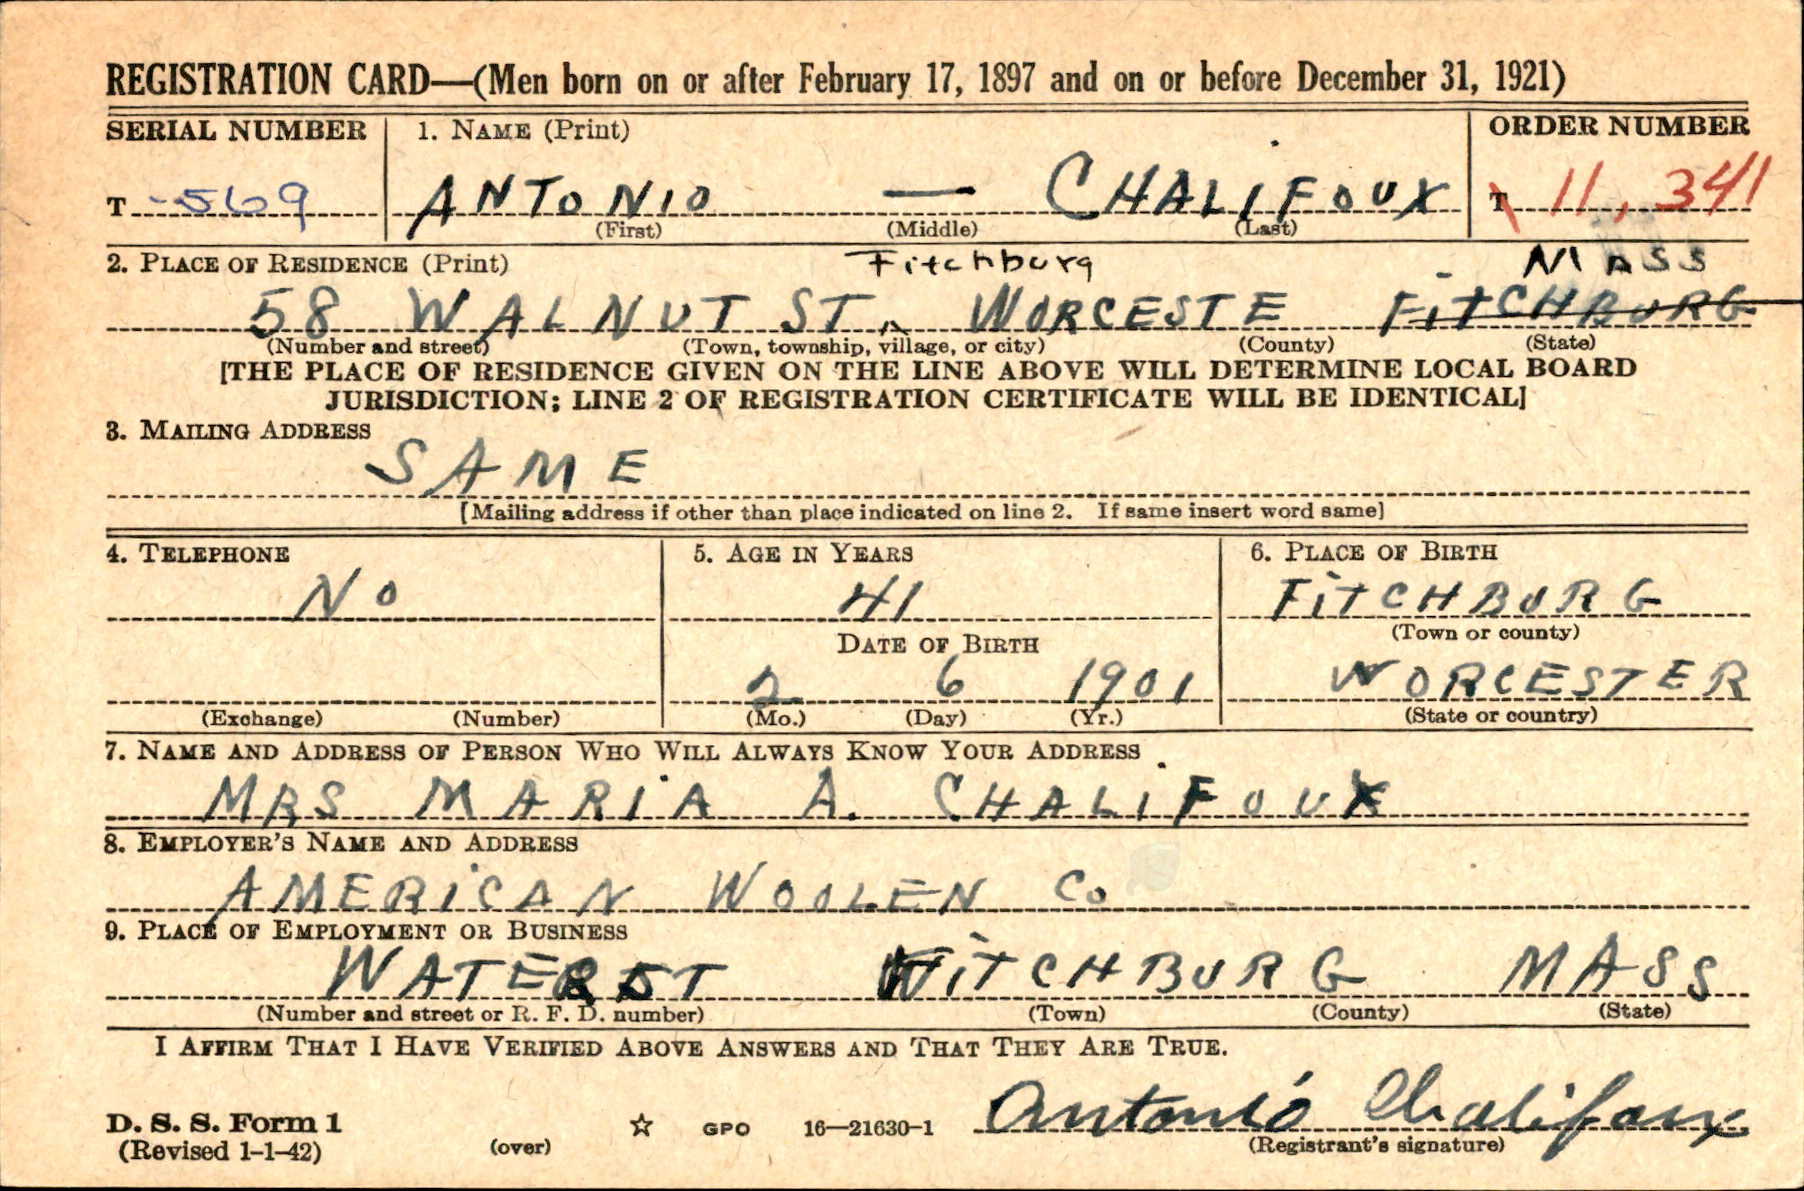 REGISTRATION CARD—(Men born on or after February 17, 1897 and on or before December 31, 1921)
SERIAL NUMBER 1. NAME (Print) ORDER NUMBER
T 569 ANTONIO — CHALIFOUX T 11,341
(First) (Middle) (Last)
2. PLACE OF RESIDENCE (Print) Fitchburg MASS
58 WALNUT ST WORCESTE FITCHBURG
(Number and street) (Town, township, village, or city) (County) (State)
[THE PLACE OF RESIDENCE GIVEN ON THE LINE ABOVE WILL DETERMINE LOCAL BOARD
JURISDICTION; LINE 2 OF REGISTRATION CERTIFICATE WILL BE IDENTICAL]
3. MAILING ADDRESS
SAME
[Mailing address if other than place indicated on line 2. If same insert word same]
4. TELEPHONE 5. AGE IN YEARS 6. PLACE OF BIRTH
NO 41 FITCHBURG
DATE OF BIRTH (Town or county)
2 6 1901 WORCESTER
(Exchange) (Number) (Mo.) (Day) (Yr.) (State or country)
7. NAME AND ADDRESS OF PERSON WHO WILL ALWAYS KNOW YOUR ADDRESS
MRS MARIA A. CHALIFOUX
8. EMPLOYER'S NAME AND ADDRESS
AMERICAN WOOLEN Co
9. PLACE OF EMPLOYMENT OR BUSINESS
WATER ST FITCHBURG MASS
(Number and street or R. F. D. number) (Town) (County) (State)
I AFFIRM THAT I HAVE VERIFIED ABOVE ANSWERS AND THAT THEY ARE TRUE.
D. S. S. Form 1
(Revised 1-1-42) (over) ☆ GPO 16—21630-1 Antonio Chalifoux
(Registrant's signature)